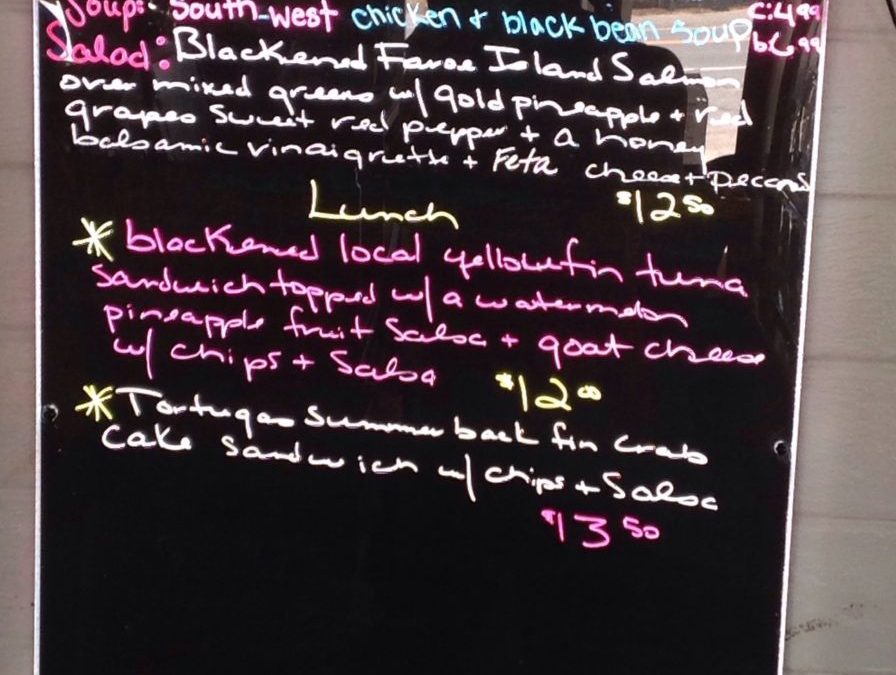 Soup: South-west chicken + black bean soup C:4.99
Salad: Blackened Faroe Island Salmon b6.99
over mixed greens w/ gold pineapple + red
grapes sweet red pepper + a honey
balsamic vinaigrette + Feta cheese + pecans
$12.50
Lunch
* blackened local yellowfin tuna
sandwich topped w/ a watermelon
pineapple fruit salsa + goat cheese
w/ chips + Salsa $12.00
* Tortugas Summer back fin crab
cake sandwich w/ chips + Salsa
$13.50